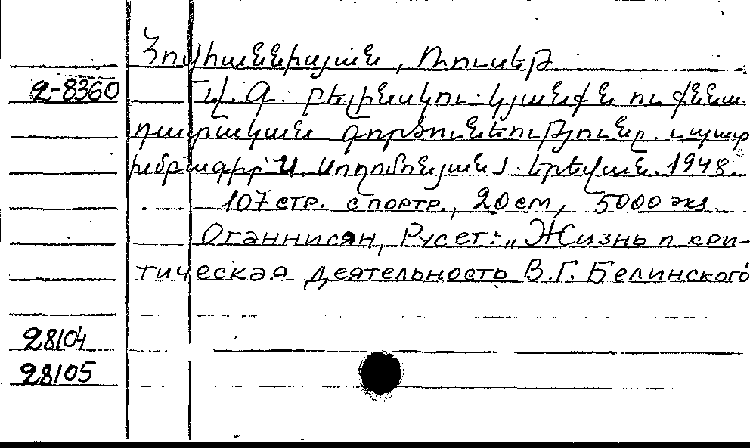 Հովհաննիսյան, Ռուսեթ
գ-8360 Վ. Գ. Բելինսկու կյանքն ու քննա
դատական գործունեությունը. պատ
խմբագիր Ս. Սողոմոնյան. Երևան. 1948.
107 стр. с портр., 20 см, 5000 экз
Оганнисян, Русет: „Жизнь и кри-
тическая деятельность В.Г. Белинского
28104
28105